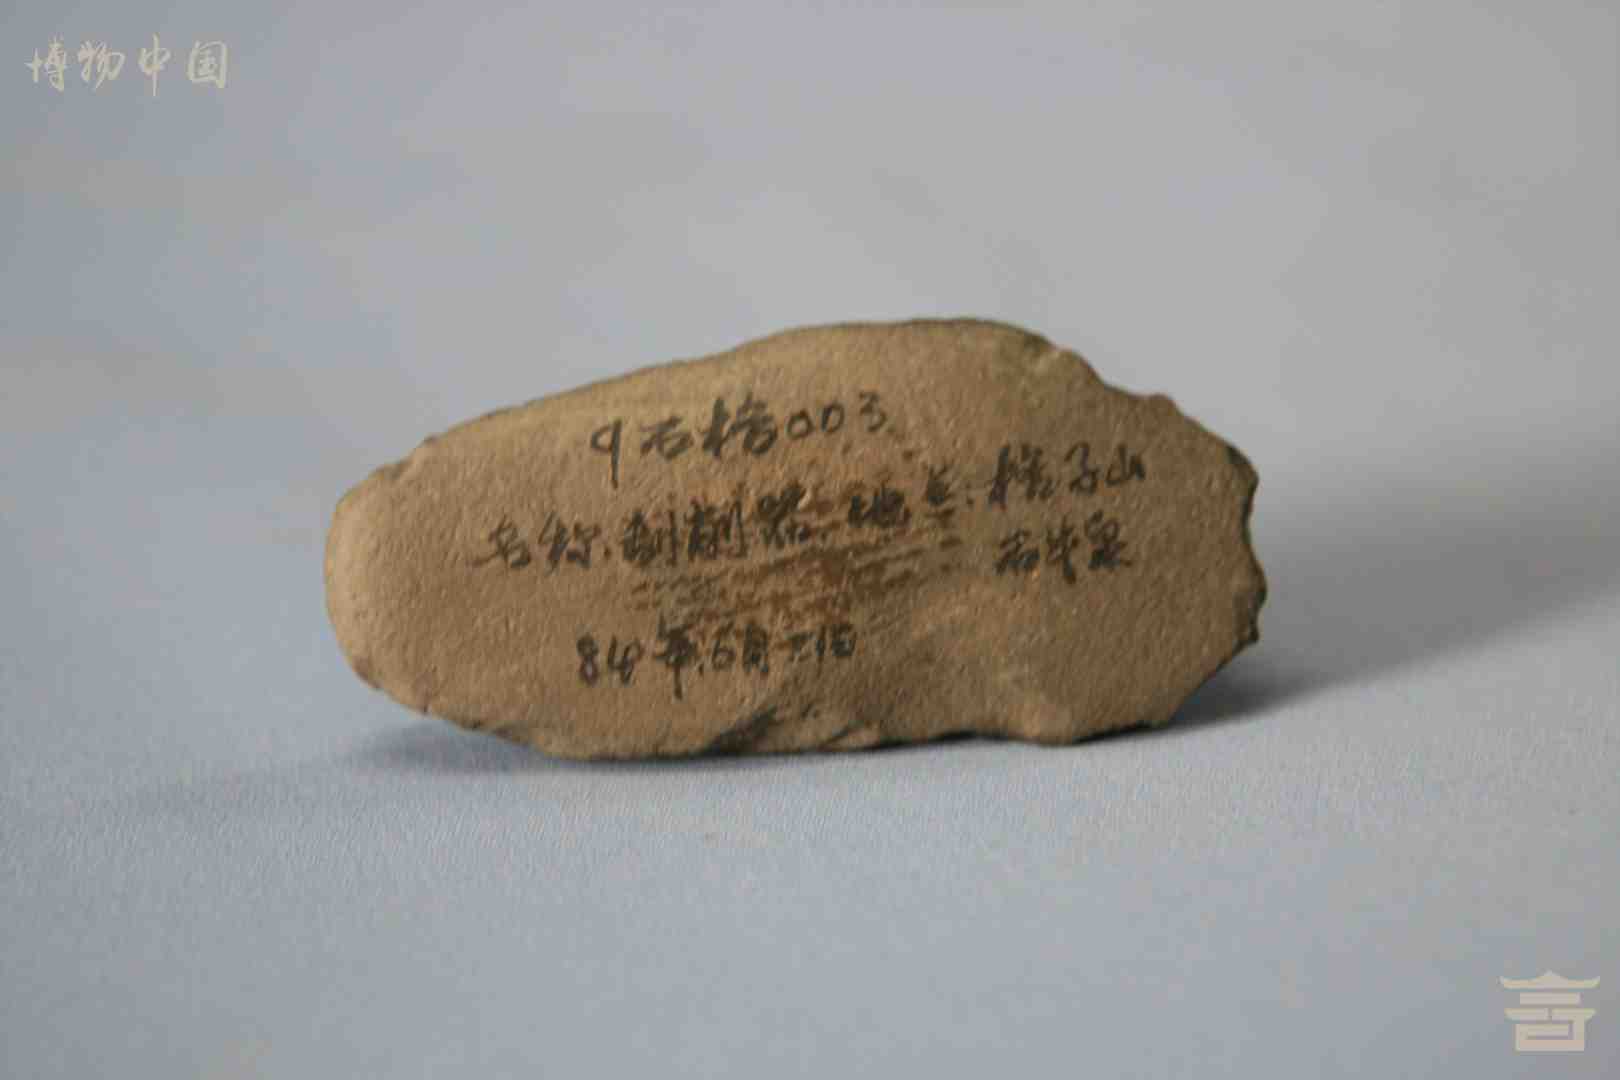 博物中国
9石榙003
名称.刮削器.地兰.榙子山
石牛泉
84年.6月